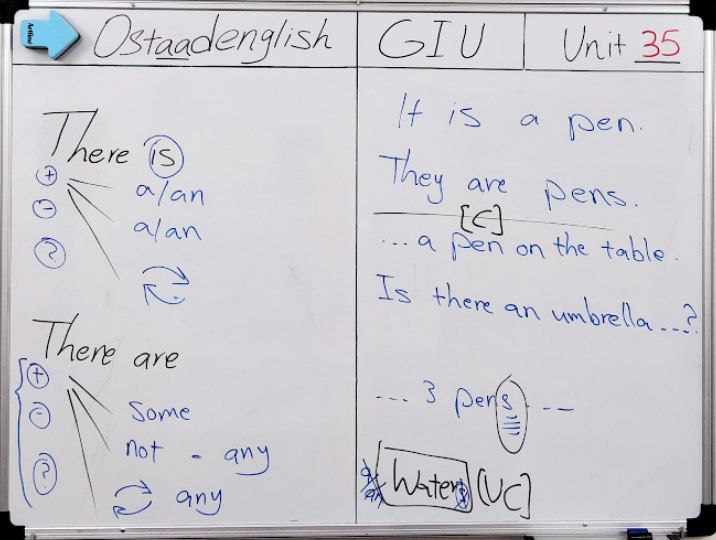 Artline
Ostaadenglish
GIU
Unit 35
There is
+ a/an
- a/an
?
There are
+ some
- not - any
? any
It is a pen.
They are pens.
[C]
...a pen on the table.
Is there an umbrella...?
... 3 pens. --
a/an Waters [UC]